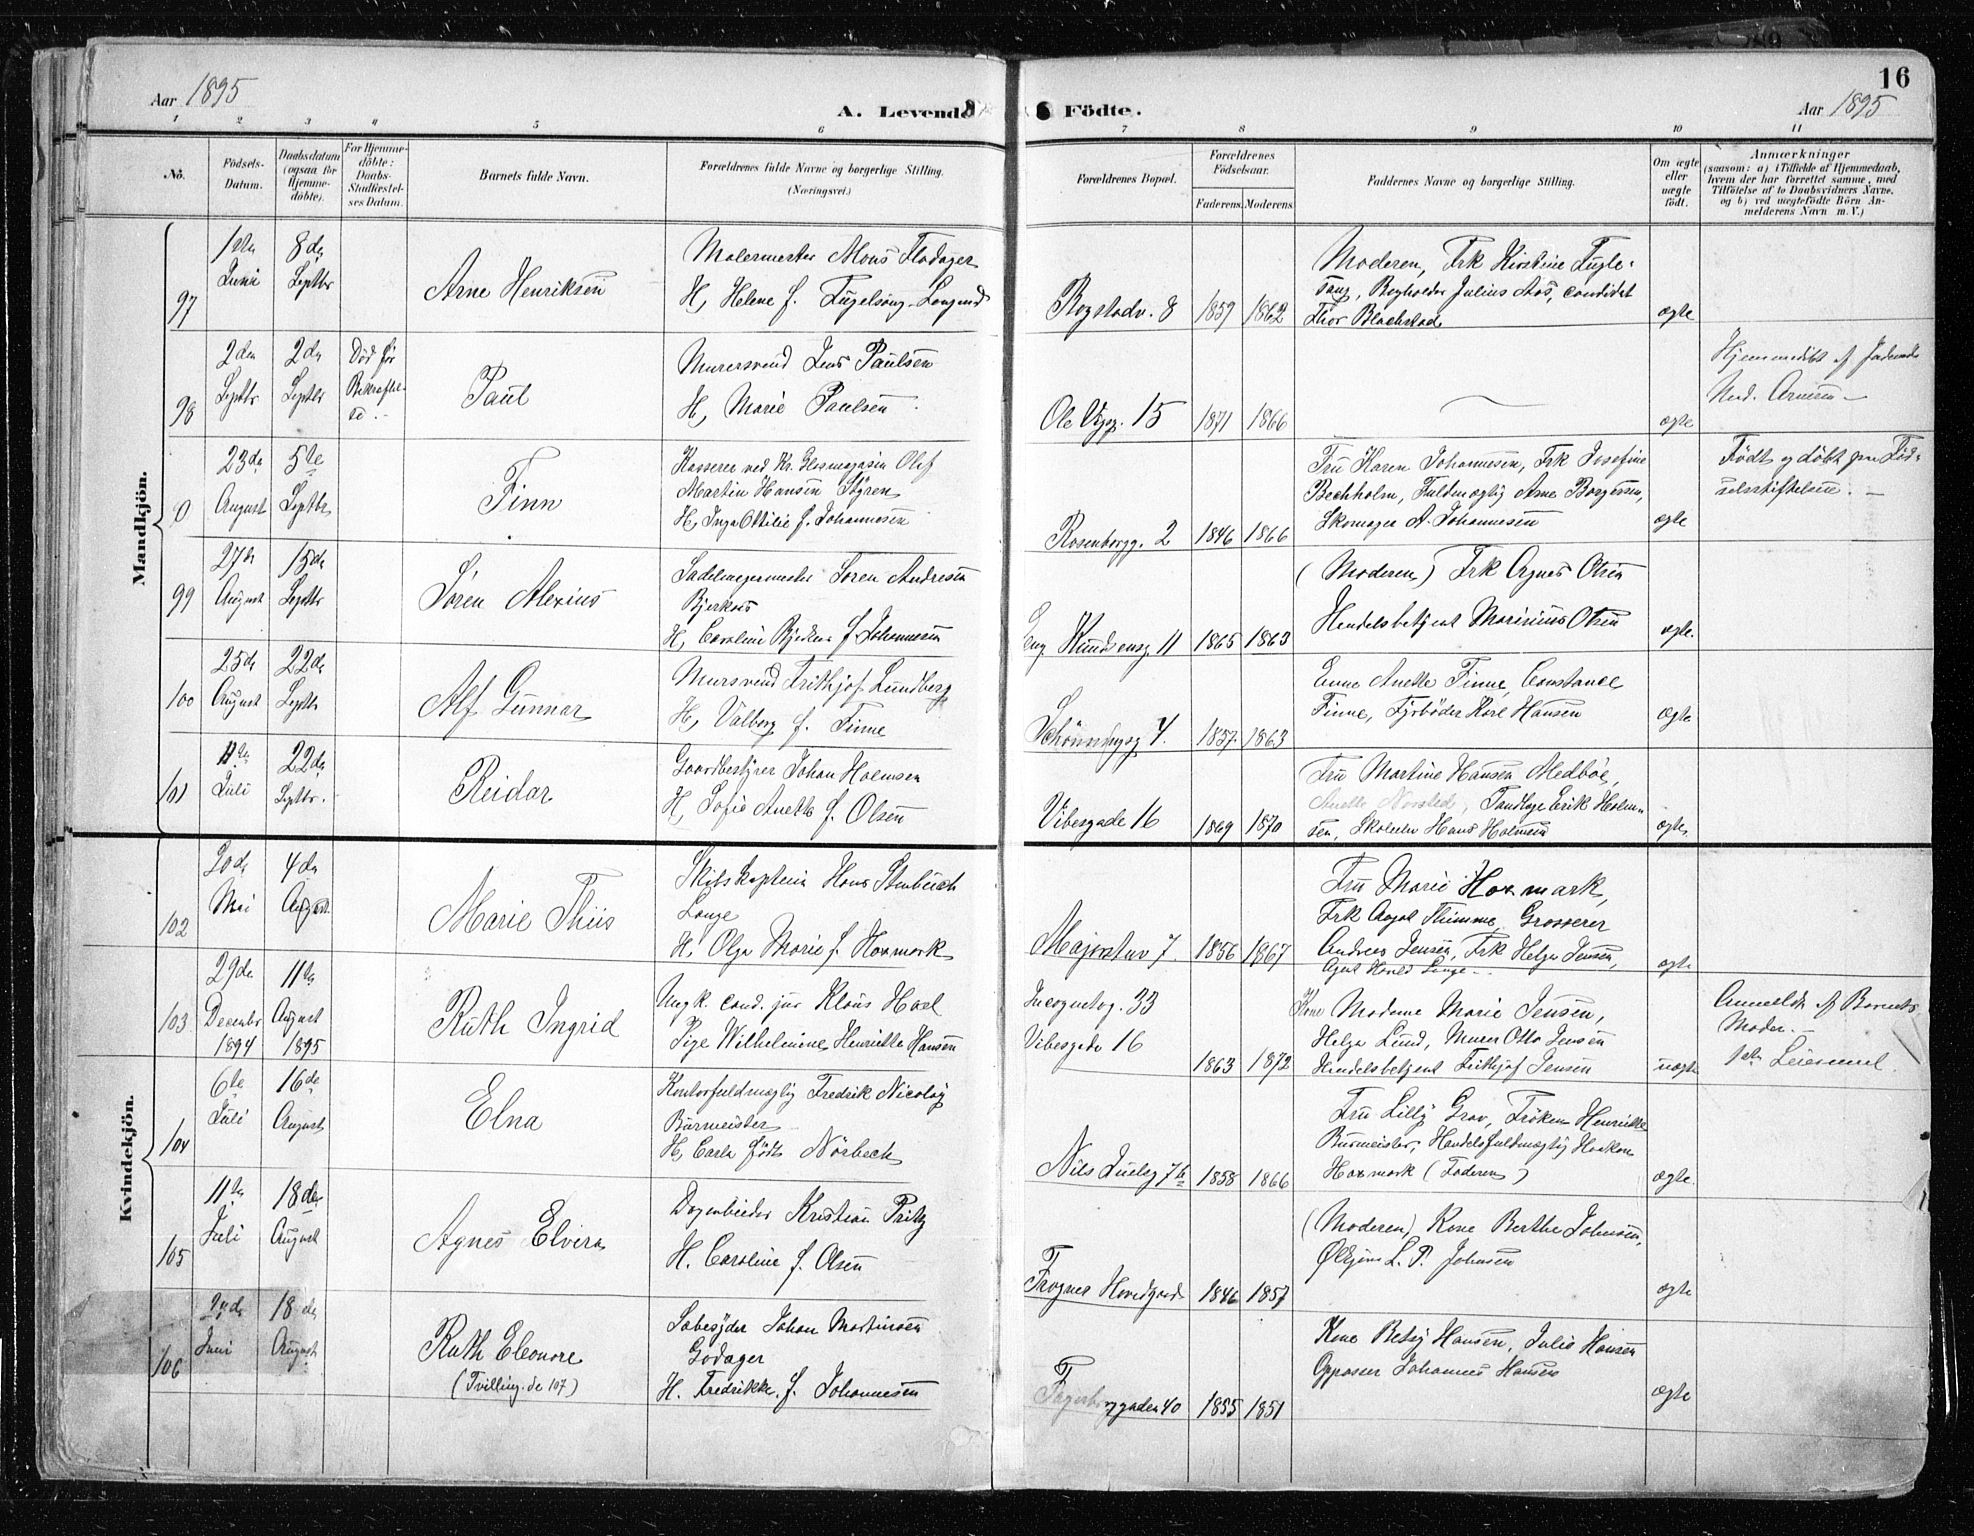 16
Aar 1895
A. Levende Födte.
Aar 1895
1 2 3 4 5 6 7 8 9 10 11
No.
Födsels-
Datum.
Daabsdatum
(ogsaa for
Hjemme-
döbte).
For Hjemme-
döbte:
Daabs-
Stadfæstel-
ses Datum.
Barnets fulde Navn.
Forældrenes fulde Navne og borgerlige Stilling.
(Næringsvei.)
Forældrenes Bopæl.
Forældrenes
Födselsaar.
Faderens. Moderens.
Faddernes Navne og borgerlige Stilling.
Om ægte
eller
uægte
födt.
Anmærkninger
(saasom: a) i Tilfælde af Hjemmedaab,
hvem der har forrettet samme, med
Tilföielse af to Daabsvidners Navne,
og b) ved uægtefödte Börn An-
melderens Navn m. V.)
Mandkjön.
97
1ste
Juni
8de
Septbr
Arne Henriksen
Malermester Mons Flodager
H, Helene f. Fugelsang-Longund
Bogstadv. 8
1859 1862
Moderen, Frk Kirstine Fugle-
sang, Bogholder Julius Aas, candidat
Thor Blachstad
ægte
98
2den
Septbr
2de
Septbr
Död før
Bekræftel-
se.
Paul
Murersvend Jens Paulsen
H, Marie Paulsen
Ole Viggg. 15
1871 1866
ægte
Hjemmedøbt af
Arnesen
0
23de
August
5te
Septbr
Finn
Kasserer ved Kr. Glasmagasin Olef
Martin Hansen Styren
H, Inga Ottilie f. Johannesen
Rosenborgg. 2
1846 1866
Fru Karen Johannesen, Frk Josefine
Bechholm, Fuldmægtig Arne Borgersen,
Skomager A. Johannesen
ægte
Født og døbt paa Fød-
selsstiftelsen.
99
27de
August
15de
Septbr
Søren Alexius
Sadelmagermester Søren Andresen
Bjerkaas
H, Caroline f. Johannesen
Eug. Knudsensg 11
1865 1863
(Moderen) Frk Agnes Olsen
Handelsbetjent Marinius Olsen
ægte.
100
25de
August
22de
Septbr
Alf Gunnar
Mursvend Frithjof Lundberg
H, Valborg f. Finne
Schönningsg 4.
1857. 1863
Enne Anette Finne, Constance
Finne, Fyrbøder Karl Hansen
ægte
101
11te
Juli
22de
Septbr.
Reidar
Gaardbestyrer Johan Holmsen
H, Sofie Anette f. Olsen
Vibesgade 16
1869 1870
Fru Martine Hansen Medbøe,
Anette Norsted, Tandlæge Erik Holm-
sen, Hans Holmsen
ægte
Kvindekjön.
102
20de
Mai
4de
August
Marie Thiis
Skibskaptein Hans Stenbuch
Lange
H. Olga Marie f. Hoxmark
Majorstuv 7.
1856 1867
Fru Marie Hoxmark,
Frk Aagot Thimme, Grosserer
Andreas Jensen, Frk Helga Jensen,
Agent Harald Lange
ægte
103
29de
December
1894
11te
August
1895
Ruth Ingrid
Ungk. cand. jur Klaus Hoel
Pige Wilhelmine Henriette Hansen
Incognitog. 33
Vibesgade 16
1863 1872
Kone Madame Marie Jensen,
Helga Lund, Murer Otto Jensen
Handelsbetjent Frithjof Jensen
uægte
Anmeldt af Barnets
Moder.
1ste Leiermaal
104
6te
Juli
16de
August
Elna
Kontorfuldmægtig Fredrik Nicolay
Burmeister
H, Carla født Nörbech
Nils Juelsg 7b
1858 1866
Fru Lilly Grav, Frøken Henriette
Burmeister, Handelsfuldmægtig Haakon
Hoxmark (Faderen)
ægte.
105
11te
Juli
18de
August
Agnes Elvira
Dagarbeider Kristian Pritz
H. Caroline f. Olsen
Frogner Hovedgaard
1846 1857
(Moderen) Kone Berthe Johnsen,
L. P. Johnsen
ægte
106
Juni
18de
August
Ruth Eleonore
(Tvilling. se 107)
Sæbesyder Johan Martinsen
Godager
H. Fredrikke f. Johannesen
Fagerborggaden 40
1855 1851
Kone Betsy Hansen, Julie Hansen
Oppasser Johannes Hansen
ægte